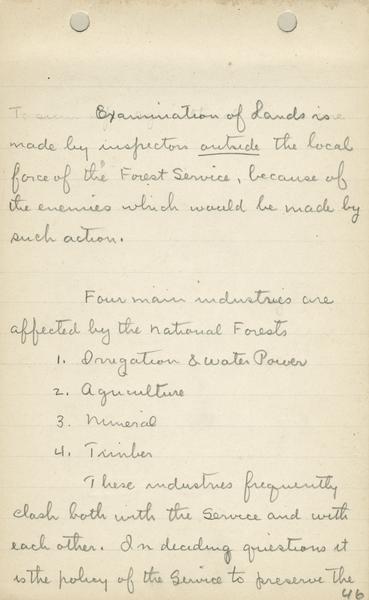 Examination of Lands is
made by inspectors outside the local
force of the Forest Service, because of
the enemies which would be made by
such action.
Four main industries are
affected by the National Forests
1. Irrigation & Water Power
2. Agriculture
3. Mineral
4. Timber
These industries frequently
clash both with the Service and with
each other. In deciding questions it
is the policy of the Service to preserve the
46